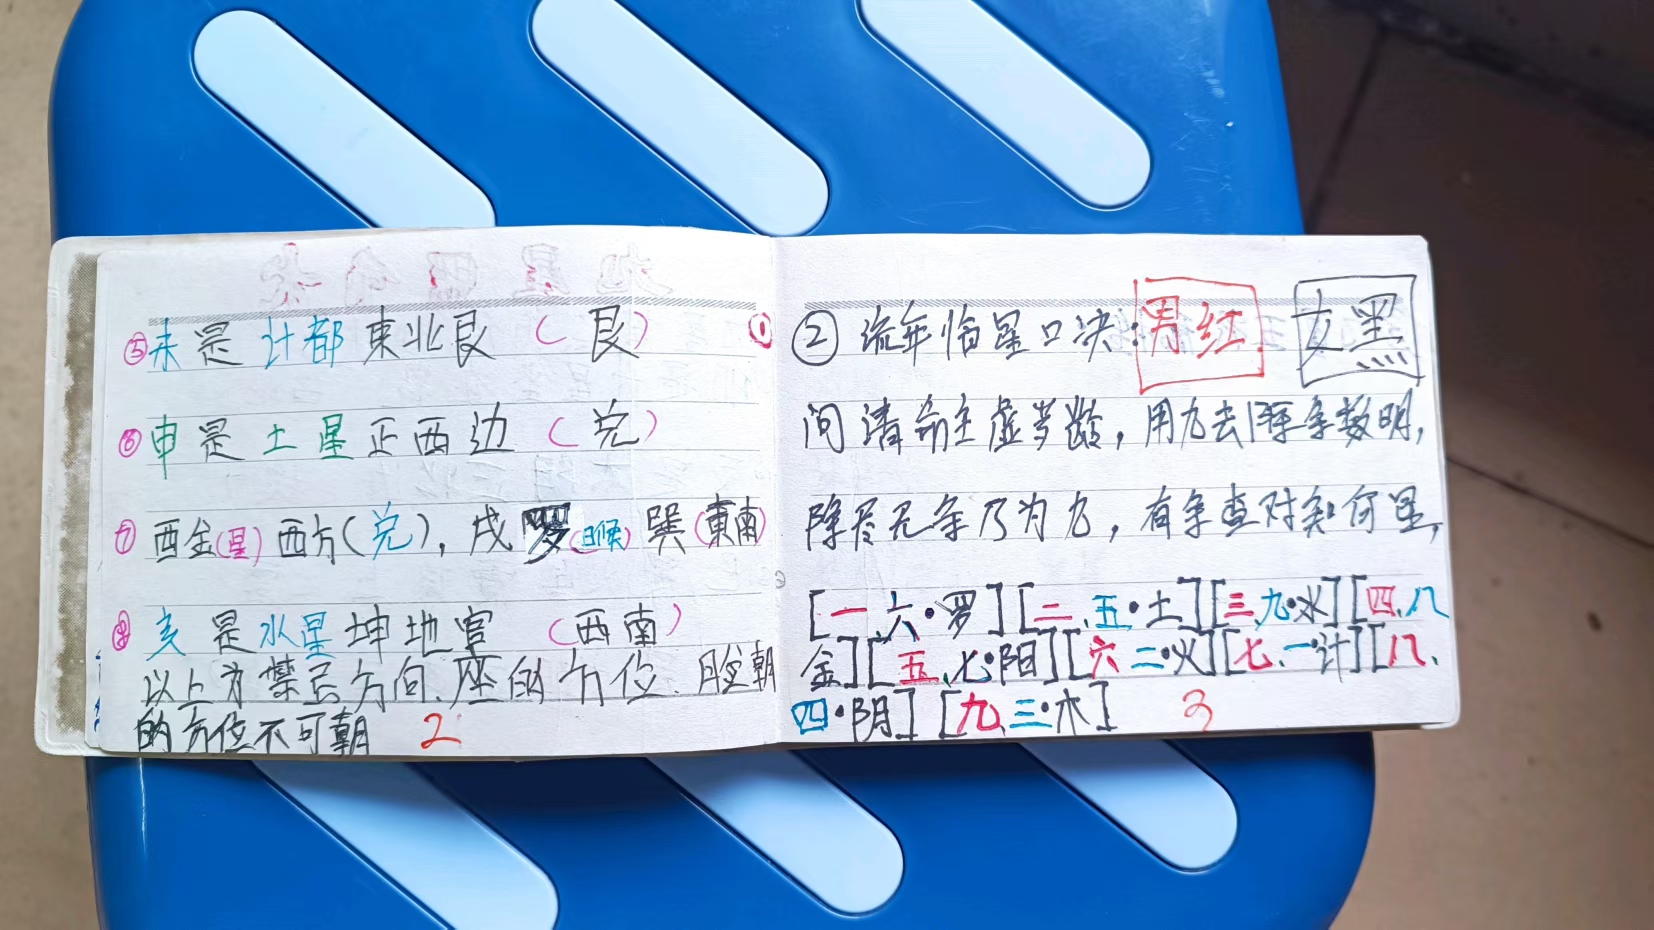 ⑤未是计都東北艮(艮)
⑥申是土星正西边(兑)
⑦酉金(星)西方(兑),戌罗(日候)巽(東南)
⑧亥是水星坤地宫(西南)
以上为禁忌方向、座的方位、脸朝
的方位不可朝
2
①
②流年临星口决:男红 女黑
问清命主虚岁龄,用九去除余数明,
除尽无余乃为九,有余查对知何星,
[一、六·罗][二、五·土][三、九·水][四、八
金][五、七·阳][六二·火][七、一·计][八、
四·阴][九、三·木]
3